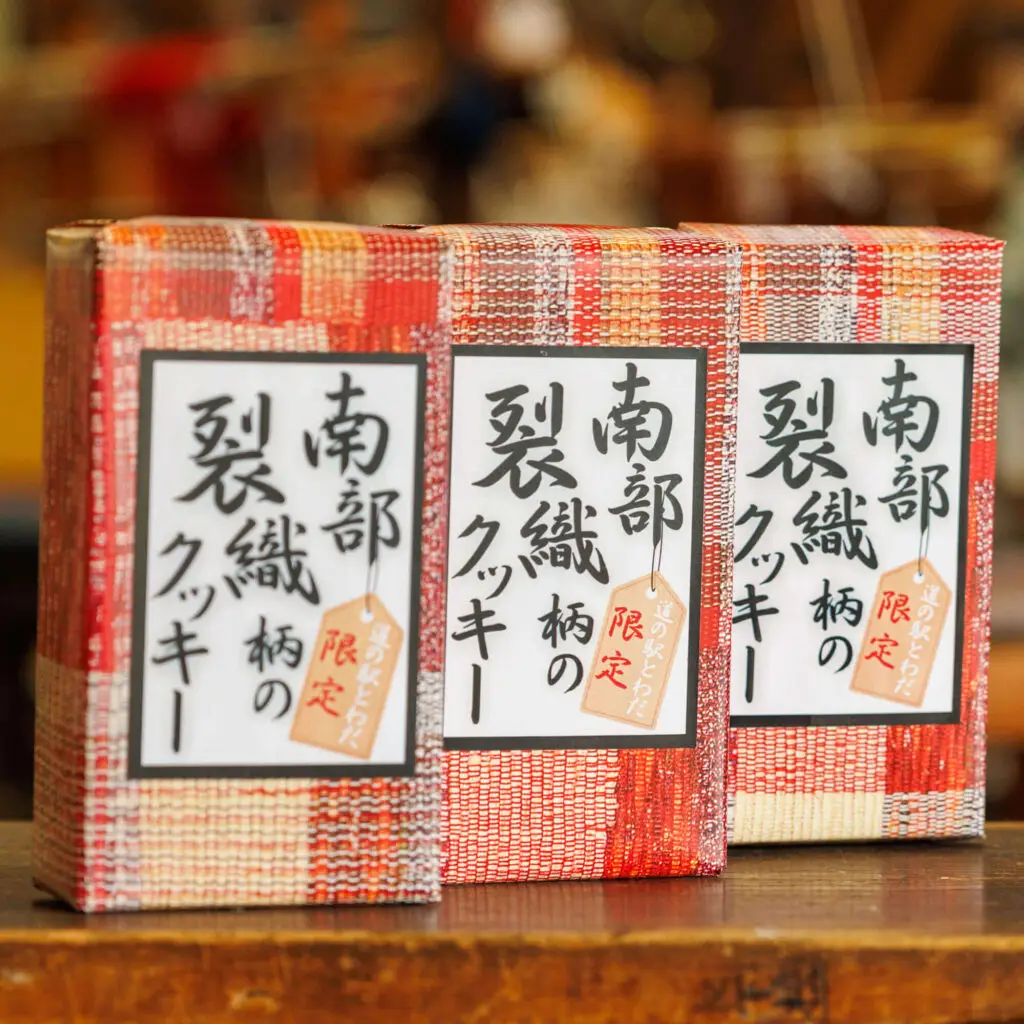 南部
裂織柄の
クッキー
道の駅とわだ
限定
南部
裂織柄の
クッキー
道の駅とわだ
限定
南部
裂織柄の
クッキー
道の駅とわだ
限定